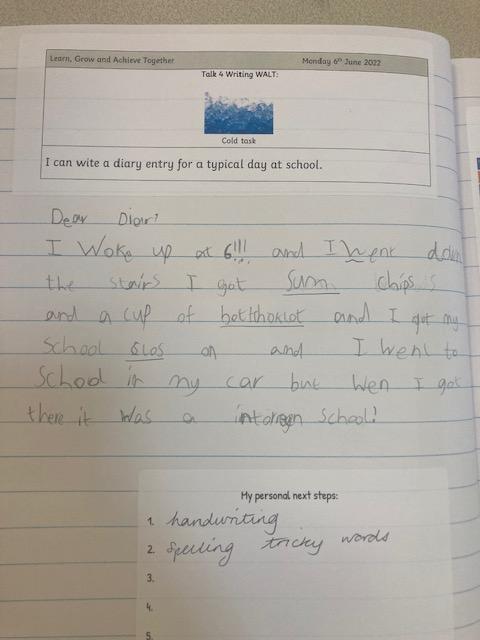 Learn, Grow and Achieve Together Monday 6th June 2022
Talk 4 Writing WALT:
Cold task
I can wite a diary entry for a typical day at school.
Dear Diary
I Woke up at 6!!! and I went down
the stairs I got sum chips
and a cup of hotthoklot and I got my
School clos on and I went to
School in my car but Wen I got
there it was a School!
My personal next steps:
1. handwriting
2. Spelling tricky words
3.
4.
5.